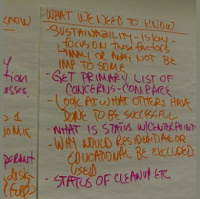 WHAT WE NEED TO KNOW
- SUSTAINABILITY - IS KEY
FOCUS ON THESE FACTORS
MAY OR MAY NOT BE
IMP TO SOME
- GET PRIMARY LIST OF
CONCERNS - COMPARE
- LOOK AT WHAT OTHERS HAVE
DONE TO BE SUCCESSFUL
- WHAT IS STATUS W/CENTERPOINT
- WHY WOULD RESIDENTIAL OR
EDUCATIONAL BE EXCLUDED
USED
- STATUS OF CLEANUP ETC